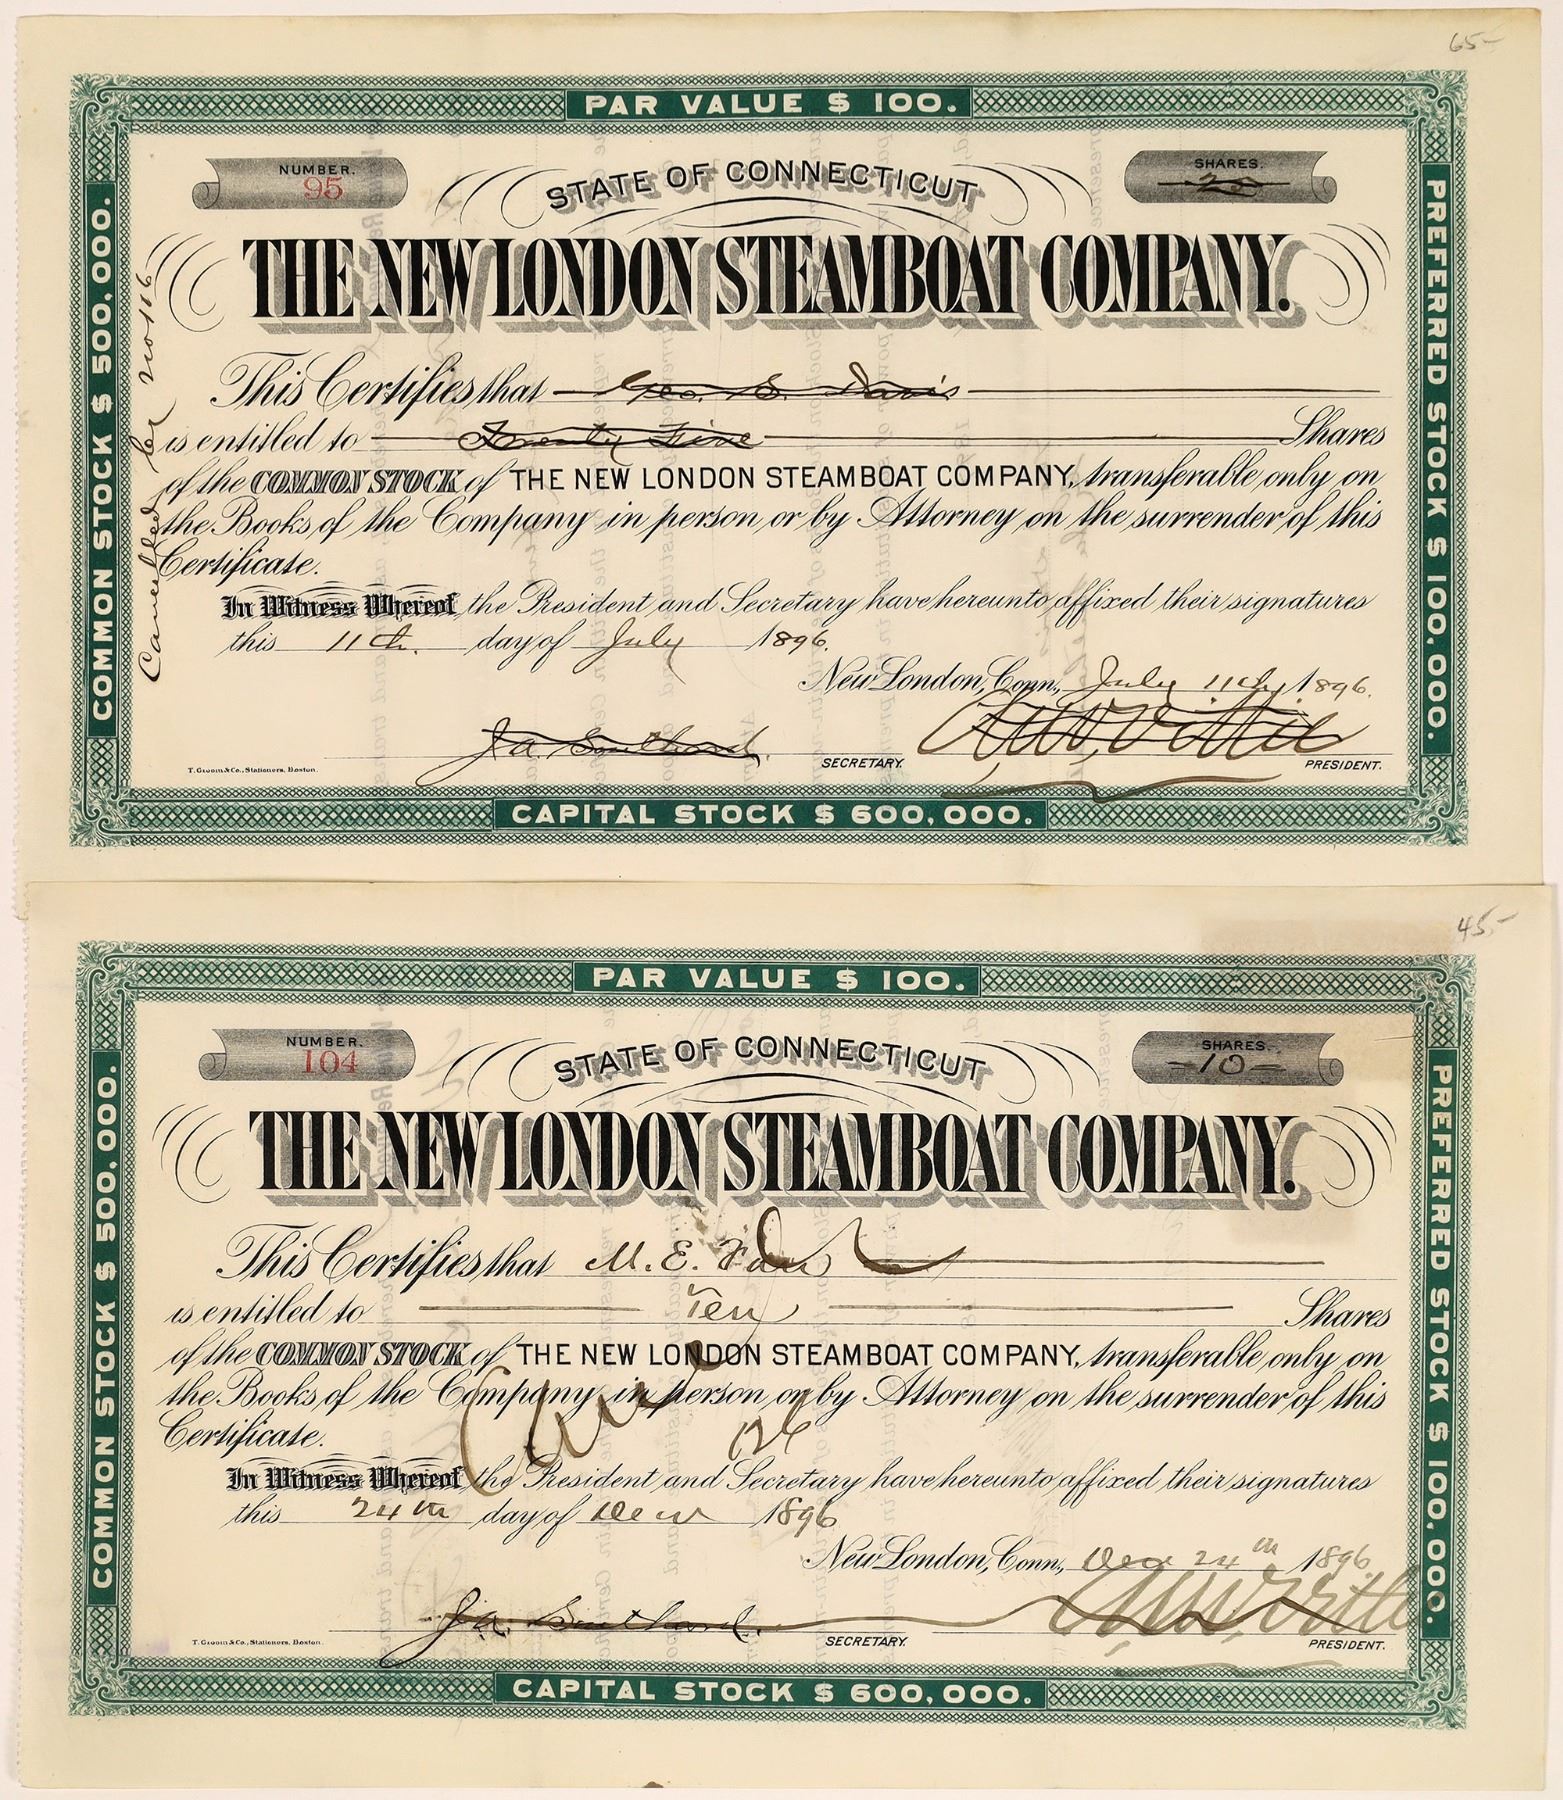 65-
PAR VALUE $ 100.
NUMBER.
95
STATE OF CONNECTICUT
SHARES.
COMMON STOCK $ 500,000.
PREFERRED STOCK $ 100,000.
THE NEW LONDON STEAMBOAT COMPANY.
Cancelled for no 116
This Certifies that Geo. S. Davis
is entitled to Twenty Five Shares
of the COMMON STOCK of THE NEW LONDON STEAMBOAT COMPANY, transferable only on
the Books of the Company in person or by Attorney on the surrender of this
Certificate.
In Witness Whereof the President and Secretary have hereunto affixed their signatures
this 11th. day of July 1896.
New London, Conn., July 11th 1896.
J.A. Southard. SECRETARY. PRESIDENT.
T. Groom & Co., Stationers, Boston.
CAPITAL STOCK $ 600,000.
45-
PAR VALUE $ 100.
NUMBER.
104
STATE OF CONNECTICUT
SHARES.
-10-
COMMON STOCK $ 500,000.
PREFERRED STOCK $ 100,000.
THE NEW LONDON STEAMBOAT COMPANY.
This Certifies that M. E.
is entitled to Ten Shares
of the COMMON STOCK of THE NEW LONDON STEAMBOAT COMPANY, transferable only on
the Books of the Company in person or by Attorney on the surrender of this
Certificate.
126
In Witness Whereof the President and Secretary have hereunto affixed their signatures
this 24th day of Dec 1896
New London, Conn., Dec 24th 1896
J.A. Southard. SECRETARY. PRESIDENT.
T. Groom & Co., Stationers, Boston.
CAPITAL STOCK $ 600,000.